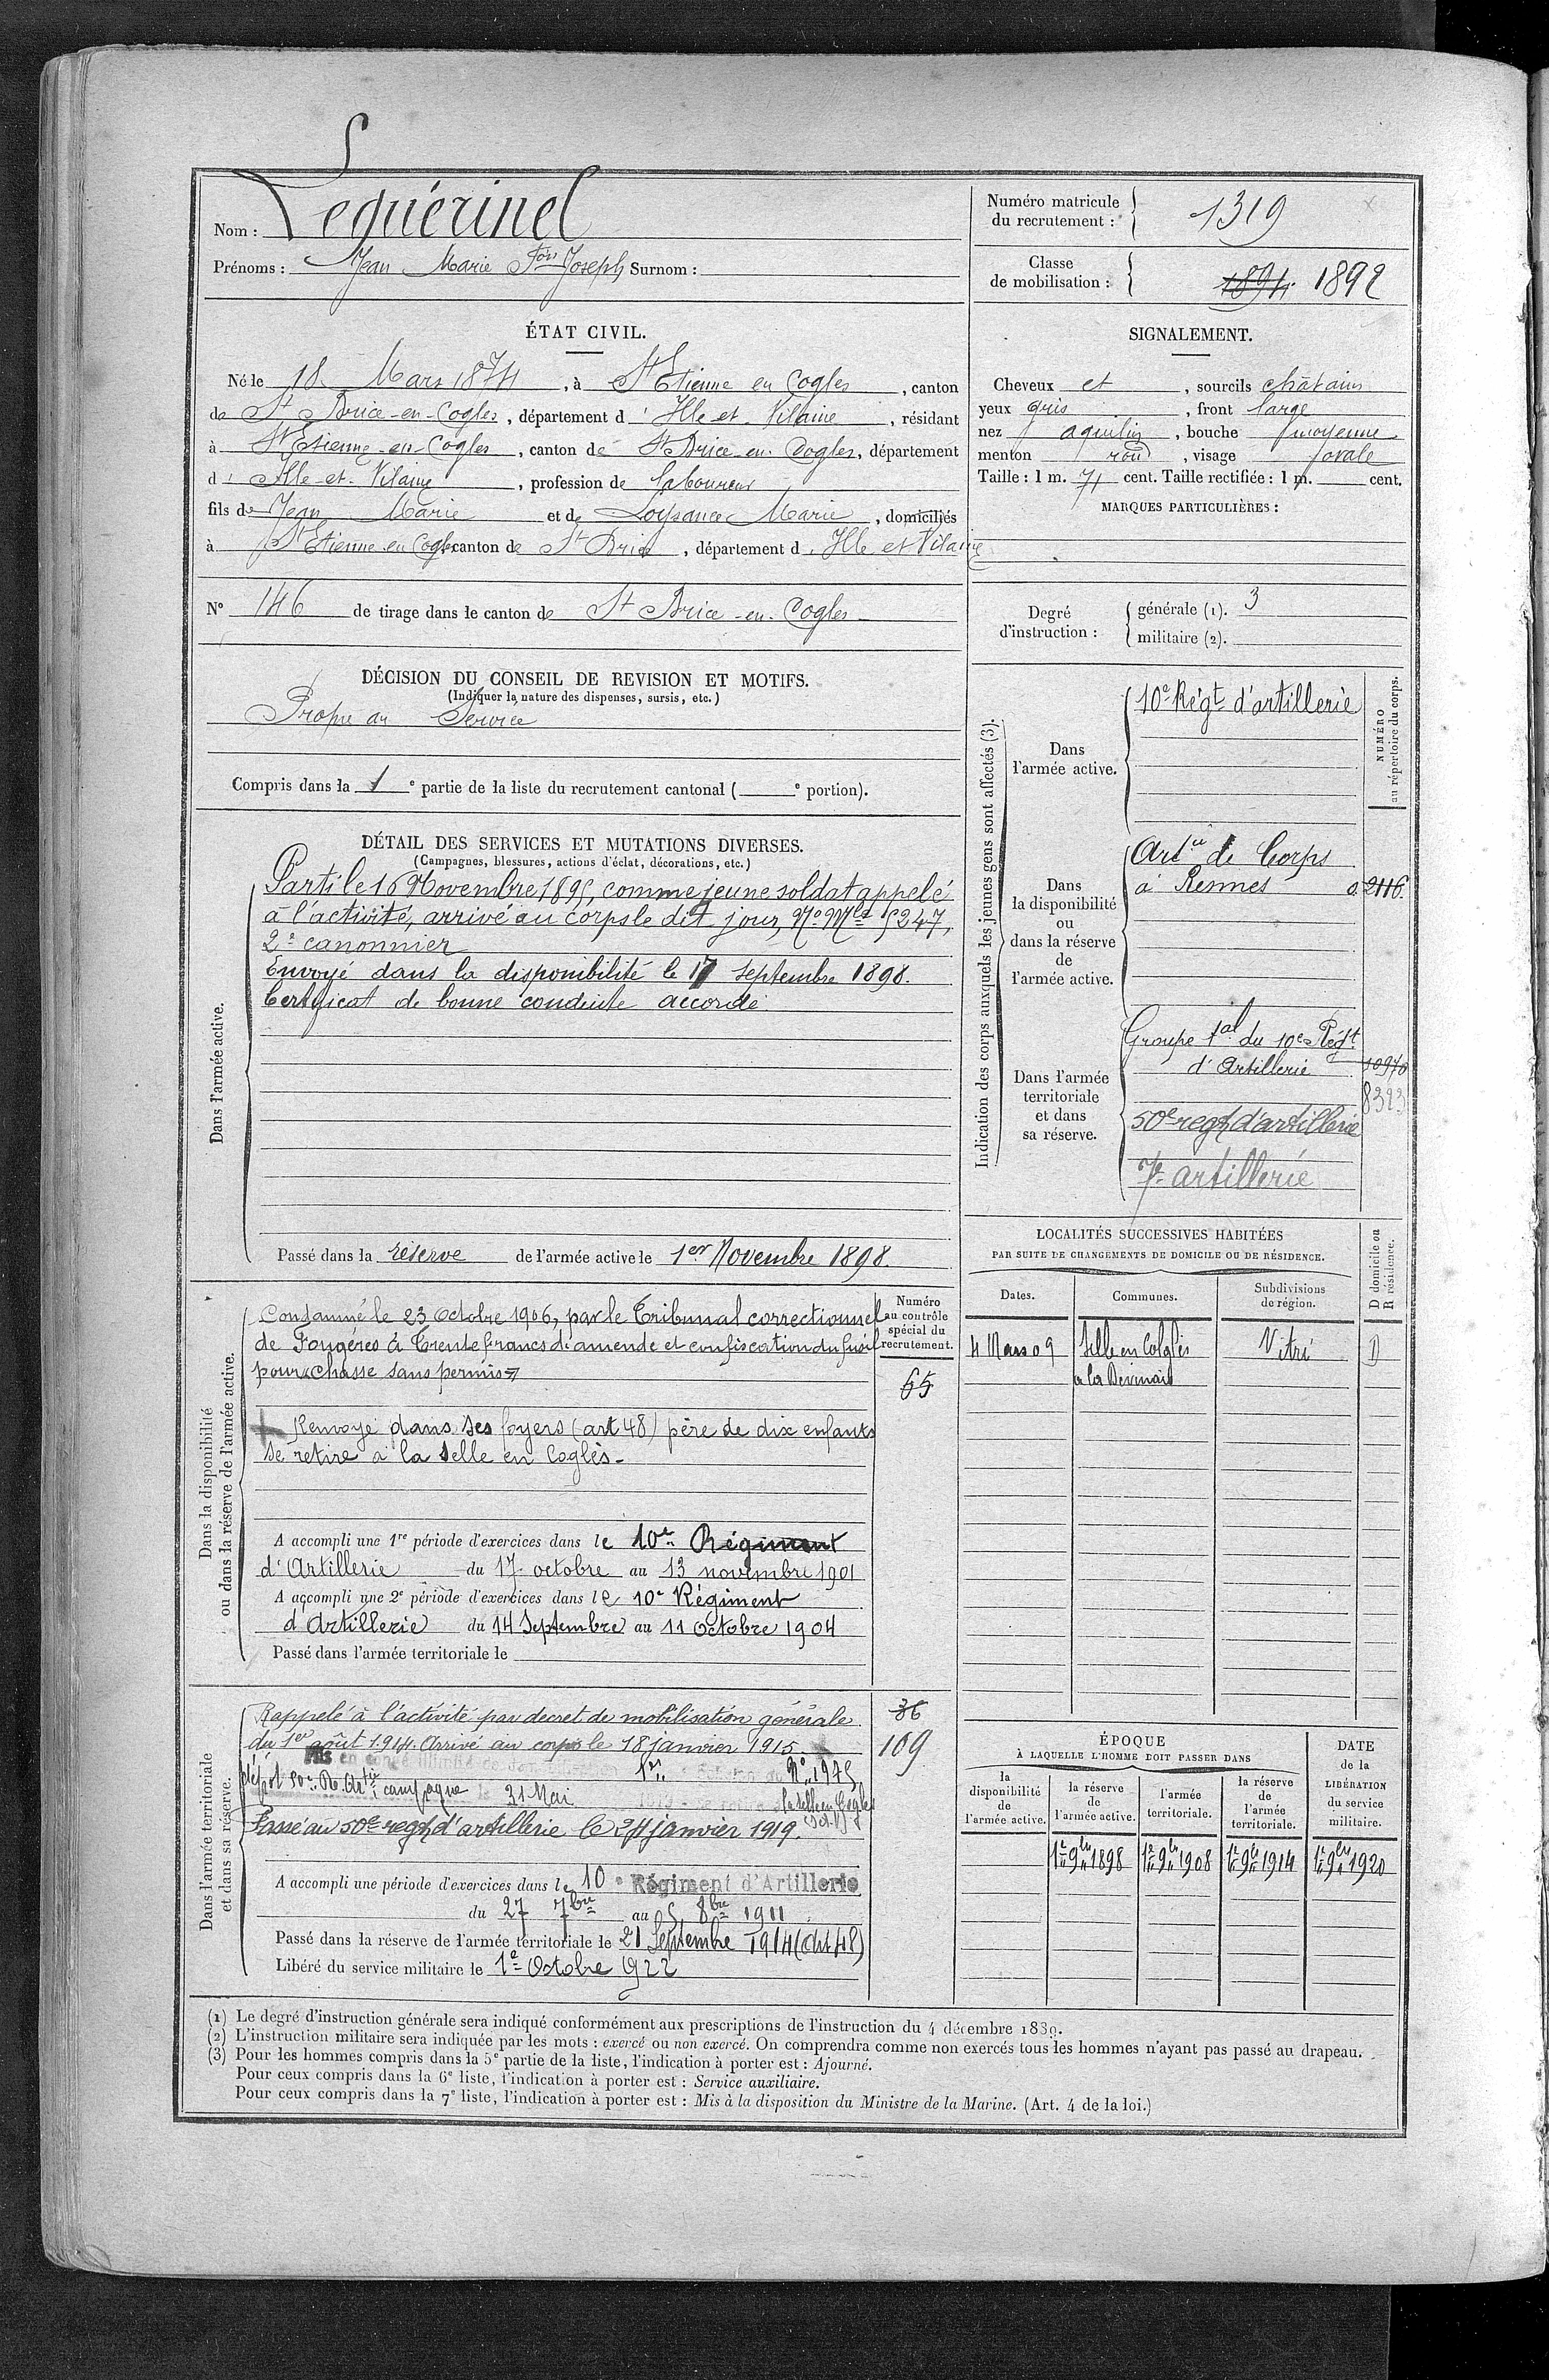 Nom : Lequérinel
Prénoms : Jean Marie Fçois Joseph Surnom :
Numéro matricule du recrutement : 1319
Classe de mobilisation : 1894 1892
ÉTAT CIVIL.
Né le 18 Mars 1874, à St Etienne en Cogles, canton
de St Brice-en-Cogles, département d' Ille et Vilaine, résidant
à St Etienne-en-Cogles, canton de St Brice en Cogles, département
d' Ille-et-Vilaine, profession de laboureur
fils de Jean Marie et de Loysance Marie, domiciliés
à St Etienne en Cogles canton de St Brice, département d' Ille et Vilaine
N° 146 de tirage dans le canton de St Brice-en-Cogles
SIGNALEMENT.
Cheveux et, sourcils châtains
yeux gris, front large
nez aquilin, bouche moyenne
menton rond, visage ovale
Taille : 1 m. 71 cent. Taille rectifiée : 1 m. cent.
MARQUES PARTICULIÈRES :
Degré d'instruction :
générale (1). 3
militaire (2).
DÉCISION DU CONSEIL DE REVISION ET MOTIFS.
(Indiquer la nature des dispenses, sursis, etc.)
Propre au Service
Compris dans la 1e partie de la liste du recrutement cantonal ( e portion).
DÉTAIL DES SERVICES ET MUTATIONS DIVERSES.
(Campagnes, blessures, actions d'éclat, décorations, etc.)
Dans l'armée active.
Parti le 16 Novembre 1895, comme jeune soldat appelé
à l'activité, arrivé au corps le dit jour, No Mle 5247,
2e canonnier
Envoyé dans la disponibilité le 17 Septembre 1898.
Certificat de bonne conduite accordé.
Passé dans la réserve de l'armée active le 1er Novembre 1898.
Indication des corps auxquels les jeunes gens sont affectés (3).
NUMÉRO au répertoire du corps.
Dans l'armée active.
10e Régt d'artillerie
Dans la disponibilité ou dans la réserve de l'armée active.
Artie de Corps
à Rennes 2116.
Dans l'armée territoriale et dans sa réserve.
Groupe tal du 10e Régt
d'Artillerie 10970
8323
50e regt d'artillerie
7e artillerie
Dans la disponibilité ou dans la réserve de l'armée active.
Numéro au contrôle spécial du recrutement.
65
Condamné le 23 octobre 1906, par le Tribunal correctionnel
de Fougères à Trente francs d'amende et confiscation du fusil
pour chasse sans permis
Renvoyé dans ses foyers (art 48) père de dix enfants
se retire à la Selle en Coglès -
A accompli une 1re période d'exercices dans le 10e Régiment
d'Artillerie du 17 octobre au 13 novembre 1901
A accompli une 2e période d'exercices dans le 10e Régiment
d'Artillerie du 14 Septembre au 11 octobre 1904
Passé dans l'armée territoriale le
LOCALITÉS SUCCESSIVES HABITÉES
PAR SUITE DE CHANGEMENTS DE DOMICILE OU DE RÉSIDENCE.
Dates. Communes. Subdivisions de région. D domicile ou R résidence.
4 Mars 09 Selle en Coglès Vitré D
Dans l'armée territoriale et dans sa réserve.
36
109
Rappelé à l'activité par decret de mobilisation générale
du 1er août 1914. Arrivé au corps le 18 janvier 1915.
Mis en congé illimité de
dépôt 50e R. Artie campagne le 31 Mai 1919
la Selle en Cogles
Passé au 50e regt d'artillerie le 24 janvier 1919.
A accompli une période d'exercices dans le 10e Régiment d'Artillerie
du 27 7bre au 5 8bre 1911
Passé dans la réserve de l'armée territoriale le 21 Septembre 1914 (Art 48)
Libéré du service militaire le 1er Octobre 1922
ÉPOQUE
À LAQUELLE L'HOMME DOIT PASSER DANS
la disponibilité de l'armée active.
la réserve de l'armée active.
l'armée territoriale.
la réserve de l'armée territoriale.
DATE de la LIBÉRATION du service militaire.
1er 9bre 1898 1er 9bre 1908 1er 9bre 1914 1er 9bre 1920
(1) Le degré d'instruction générale sera indiqué conformément aux prescriptions de l'instruction du 4 décembre 1889.
(2) L'instruction militaire sera indiquée par les mots : exercé ou non exercé. On comprendra comme non exercés tous les hommes n'ayant pas passé au drapeau.
(3) Pour les hommes compris dans la 5e partie de la liste, l'indication à porter est : Ajourné.
Pour ceux compris dans la 6e liste, l'indication à porter est : Service auxiliaire.
Pour ceux compris dans la 7e liste, l'indication à porter est : Mis à la disposition du Ministre de la Marine. (Art. 4 de la loi.)